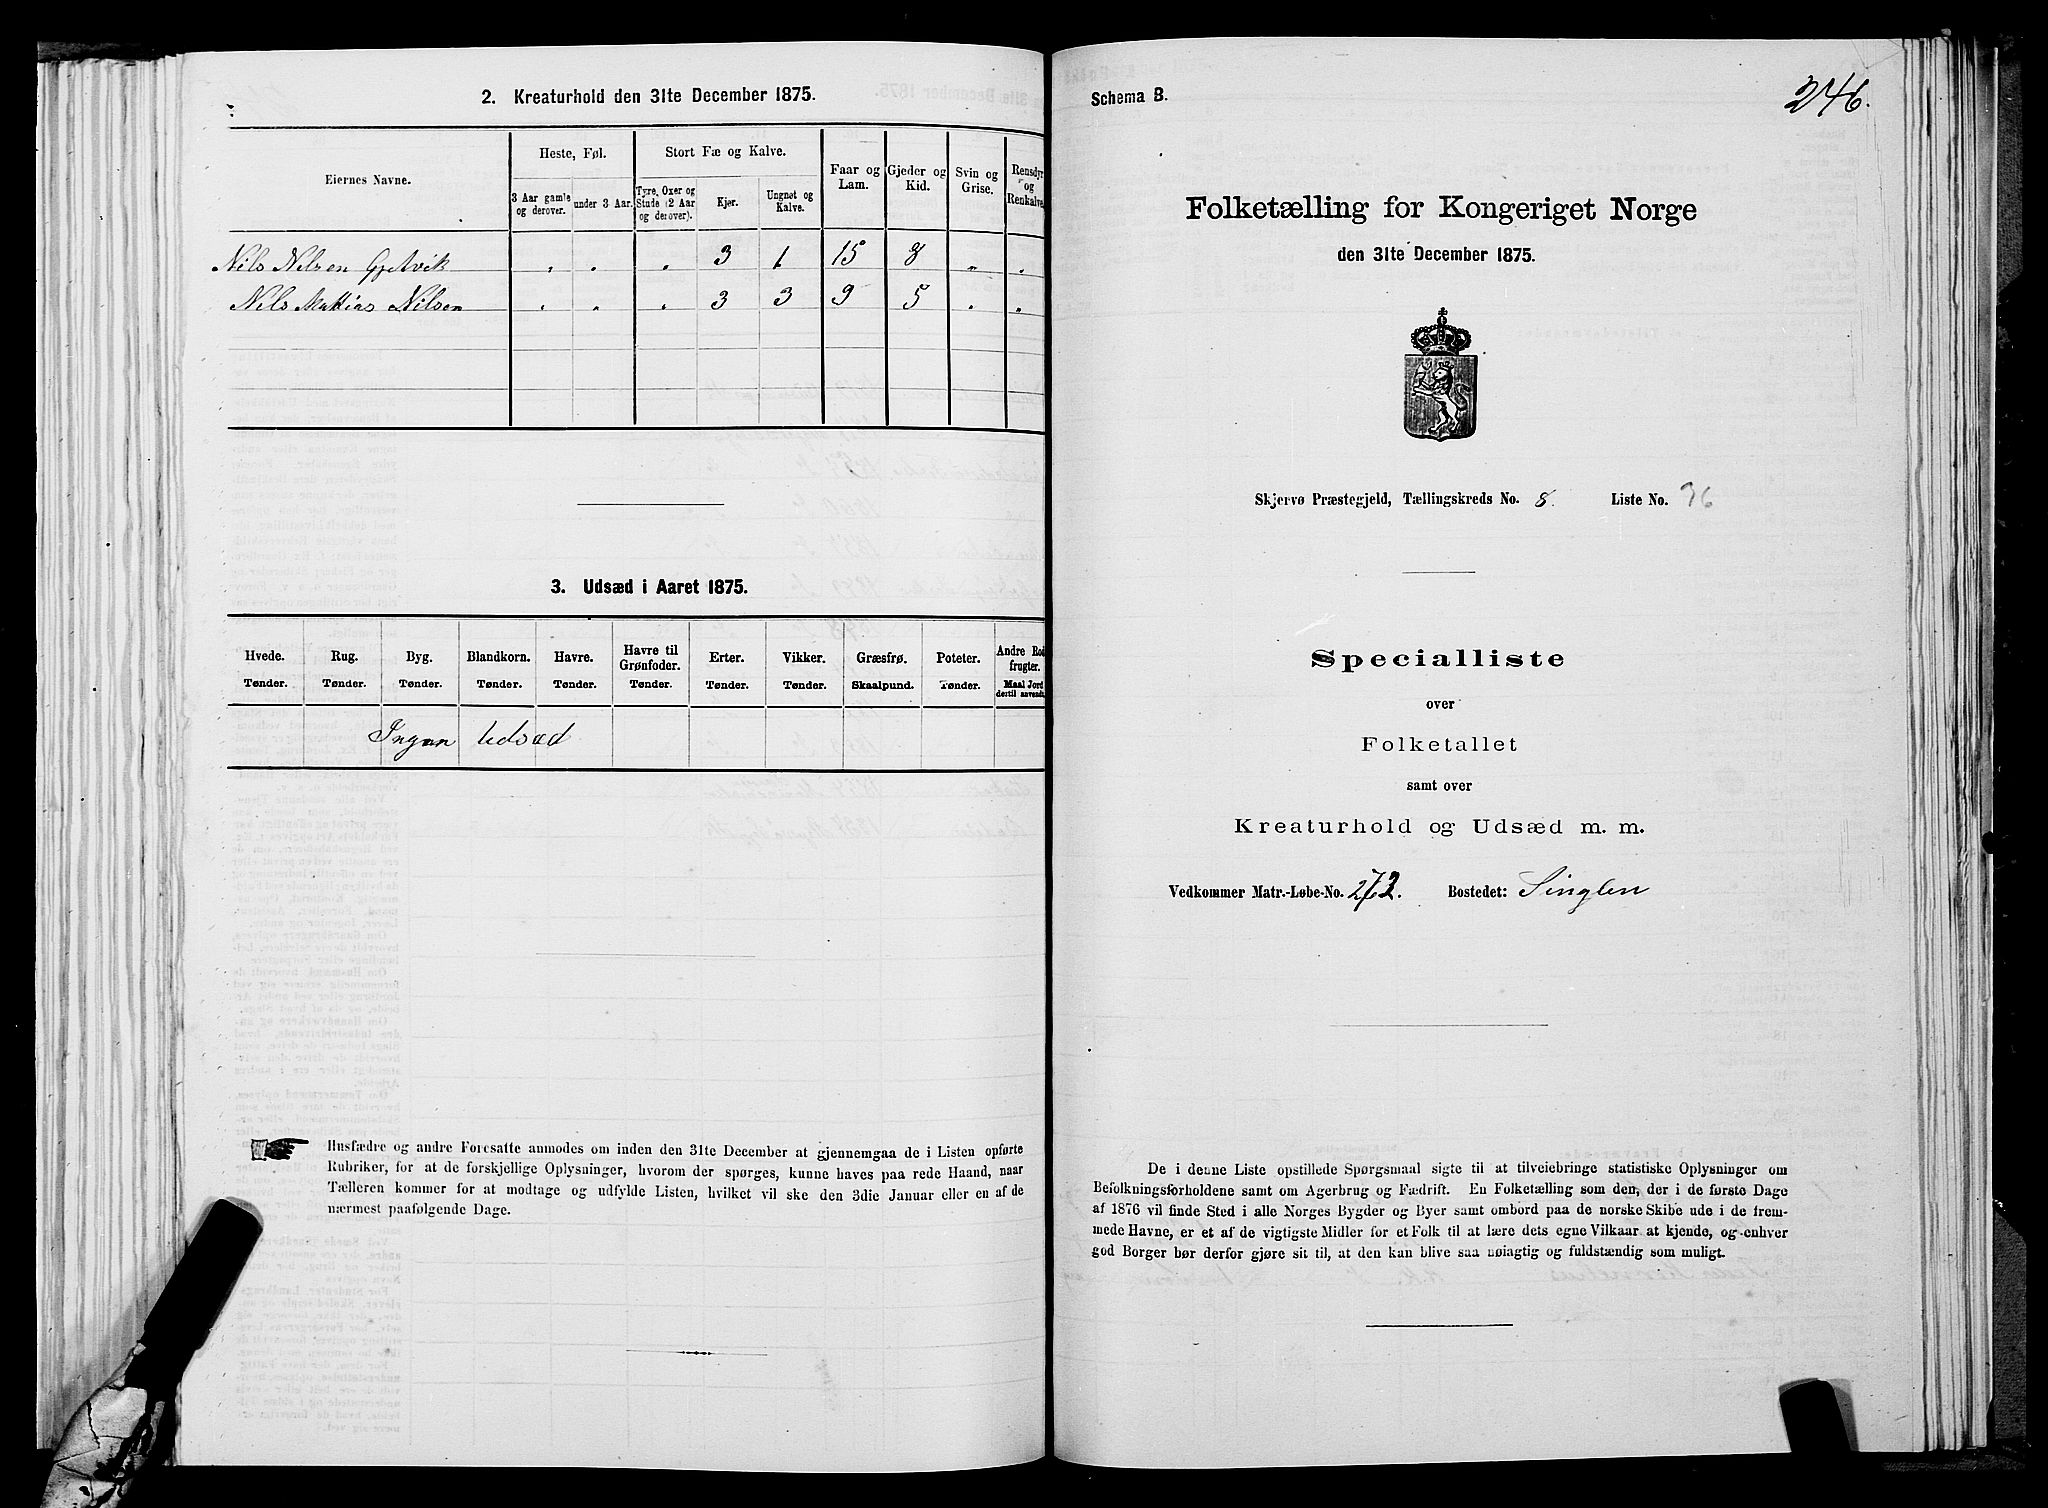 2. Kreaturhold den 31te December 1875.
Eiernes Navne.
Heste, Føl.
Stort Fæ og Kalve.
Faar og Lam.
Gjeder og Kid.
Svin og Grise.
Rensdyr og Renkalve.
3 Aar gamle og derover.
under 3 Aar.
Tyre, Oxer og Stude (2 Aar og derover).
Kjør.
Ungnøt og Kalve.
Nils Nilsen Gjetvik " " " 3 1 15 8 " "
Nils Mattias Nilsen " " " 3 3 9 5 " "
3. Udsæd i Aaret 1875.
Hvede. Rug. Byg. Blandkorn. Havre. Havre til Grønfoder. Erter. Vikker. Græsfrø. Poteter. Andre Rodfrugter.
Tønder. Tønder. Tønder. Tønder. Tønder. Tønder. Tønder. Tønder. Skaalpund. Tønder. Maal Jord dertil anvendt.
Ingen Udsæd
Husfædre og andre Foresatte anmodes om inden den 31te December at gjennemgaa de i Listen opførte
Rubriker, for at de forskjellige Oplysninger, hvorom der spørges, kunne haves paa rede Haand, naar
Tælleren kommer for at modtage og udfylde Listen, hvilket vil ske den 3die Januar eller en af de
nærmest paafølgende Dage.
Schema B.
246.
Folketælling for Kongeriget Norge
den 31te December 1875.
Skjervø Præstegjeld, Tællingskreds No. 8. Liste No. 36
Specialliste
over
Folketallet
samt over
Kreaturhold og Udsæd m. m.
Vedkommer Matr.-Løbe-No. 272. Bostedet: Singlen
De i denne Liste opstillede Spørgsmaal sigte til at tilveiebringe statistiske Oplysninger om
Befolkningsforholdene samt om Agerbrug og Fædrift. En Folketælling som den, der i de første Dage
af 1876 vil finde Sted i alle Norges Bygder og Byer samt ombord paa de norske Skibe ude i de frem-
mede Havne, er et af de vigtigste Midler for et Folk til at lære dets egne Vilkaar at kjende, og enhver
god Borger bør derfor gjøre sit til, at den kan blive saa nøiagtig og fuldstændig som muligt.